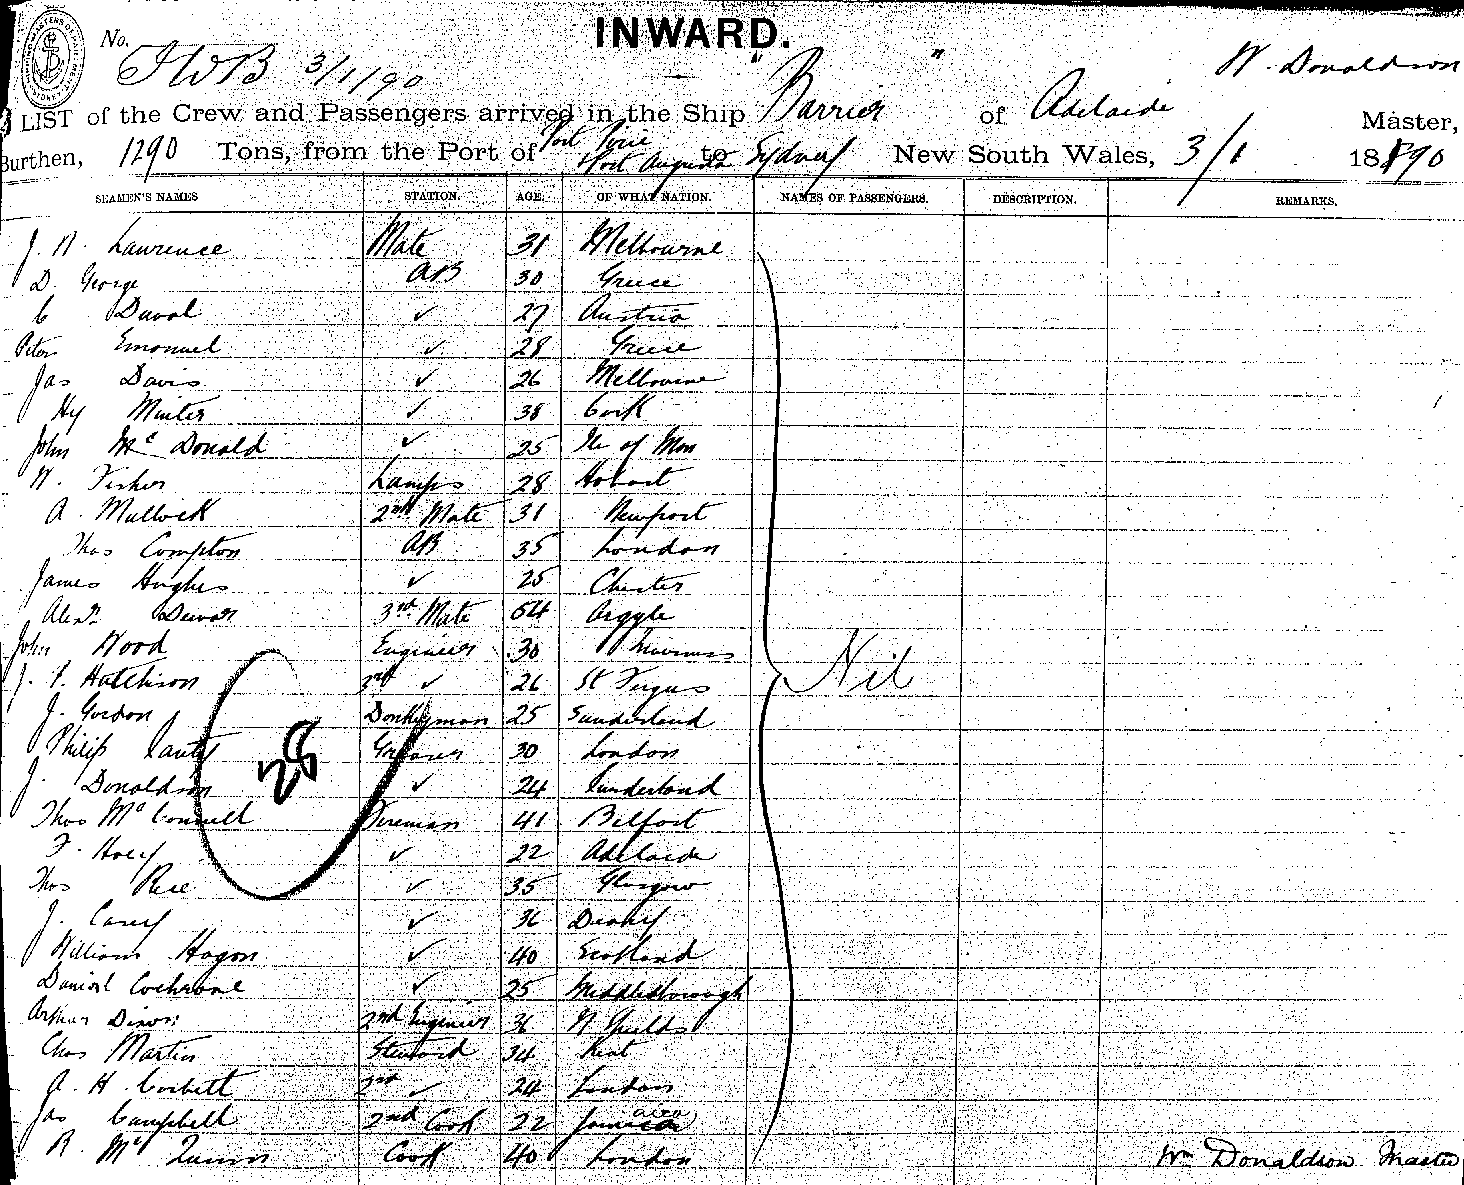 No.
INWARD.
3/1/90
"Barrier"
W. Donaldson
LIST of the Crew and Passengers arrived in the Ship Barrier of Adelaide Master,
Burthen, 1290 Tons, from the Port of Port Pirie Port Augusta to Sydney New South Wales, 3/1 1890
SEAMEN'S NAMES STATION. AGE. OF WHAT NATION. NAMES OF PASSENGERS. DESCRIPTION. REMARKS.
J. N. Lawrence Mate 31 Melbourne
D. George AB 30 Greece
C Duval ✓ 27 Austria
Peter Emanuel ✓ 28 Greece
Jas Davis ✓ 26 Melbourne
Hy Minter ✓ 38 Cork
John McDonald ✓ 25 Ile of Man
W. Fisher Lamps 28 Hobart
A. Mullock 2nd Mate 31 Newport
Thos Compton AB 35 London
James Hughes ✓ 25 Chester
Alexr Dewar 3rd Mate 54 Argyle
John Wood Engineer 30 Inverness
J. Hutchison 3rd ✓ 26 St Fergus
Nil
J. Gordon Donkeyman 25 Sunderland
Philip Greaser 30 London
28
J. Donaldson ✓ 24 Sunderland
Thos Mc Fireman 41 Belfast
F. Hoey ✓ 22 Adelaide
Thos Rice ✓ 35 Glasgow
J. Casey ✓ 36
William Hogan ✓ 40 Scotland
Daniel Cochrane ✓ 25 Middlesborough
Arthur Dixon 2nd Engineer 36 N Shields
Chas Martin Steward 34 Kent
A. H. Corbett 2nd ✓ 24 London
Jas Campbell 2nd Cook 22 Jamaica
R. Mc Cook 40 London
Wm Donaldson Master